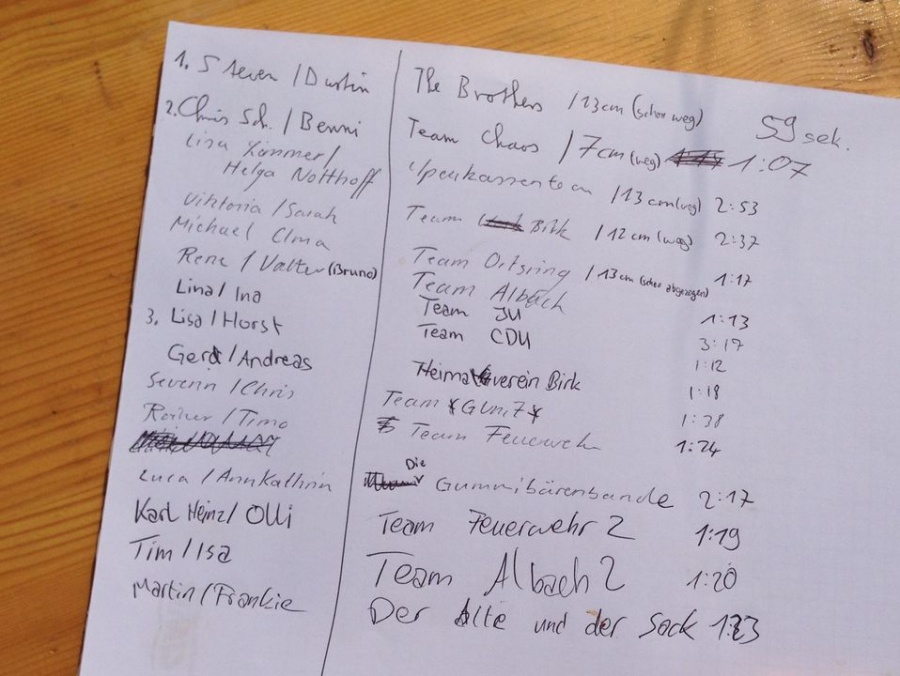 1. Steven / Dustin The Brothers / 13cm (schon weg) 59 sek.
2. Chris Sch. / Benni Team Chaos / 7cm (weg) 1:07
Lisa Kömmer /
Helga Notthoff / 13 cm (weg) 2:53
Viktoria / Sarah Team Birk / 12 cm (weg) 2:37
Michael Team Ortsring / 13cm (schon abgezogen) 1:17
Rene / Walter (Bruno) Team Albach 1:13
Lina / Ina Team JU 3:17
3. Lisa / Horst Team CDU 1:12
Gerd / Andreas Heimatverein Birk 1:18
Severin / Chris Team 1:38
Rainer / Timo Team Feuerwehr 1:24
Luca / AnnKathrin Die Gummibärenbande 2:17
Karl Heinz / Olli Team Feuerwehr 2 1:19
Tim / Isa Team Albach 2 1:20
Martin / Frankie Der Alte und der Sack